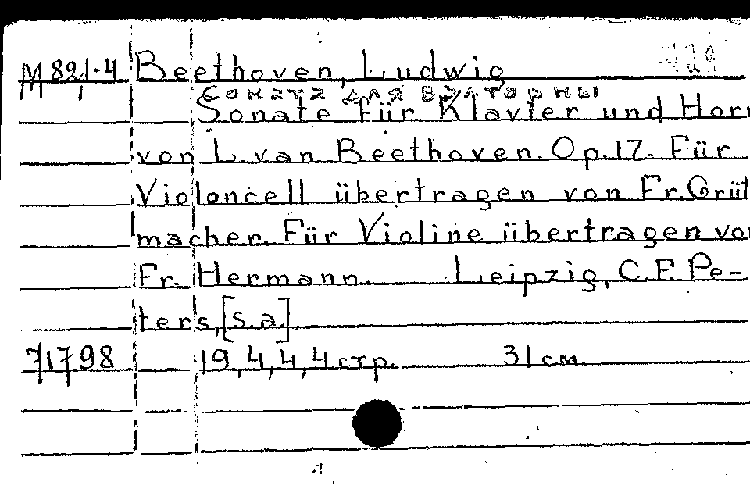 M 821.4 Beethoven, Ludwig
Sonate für Klavier und Horn
von L. van Beethoven. Op.17. Für
Violoncell übertragen von Fr. Grüt
macher. Für Violine übertragen vo
Fr. Hermann. Leipzig, C.F. Pe-
ters, [s.a.]
71798 19, 4, 4, 4 стр. 31 см